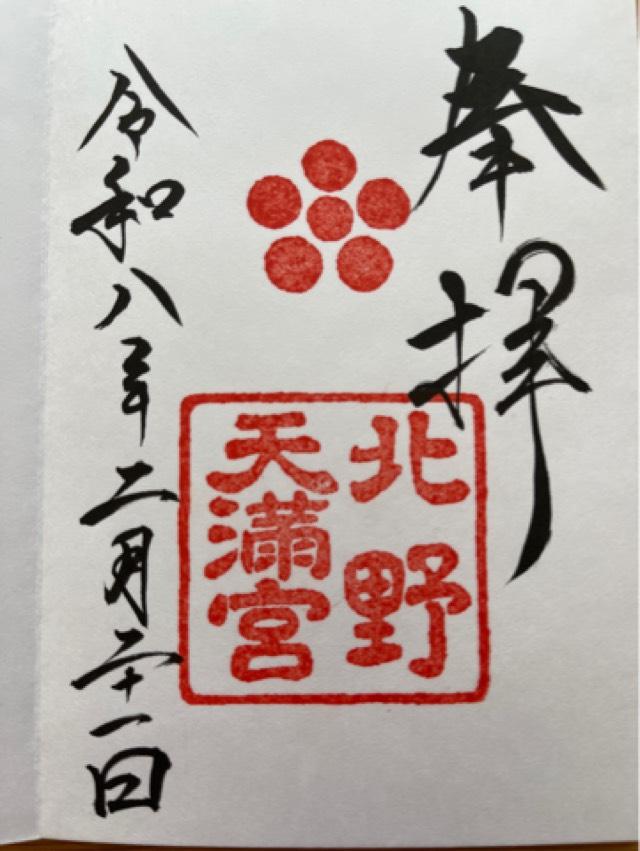 奉拝
北野
天満宮
令和八年二月二十一日